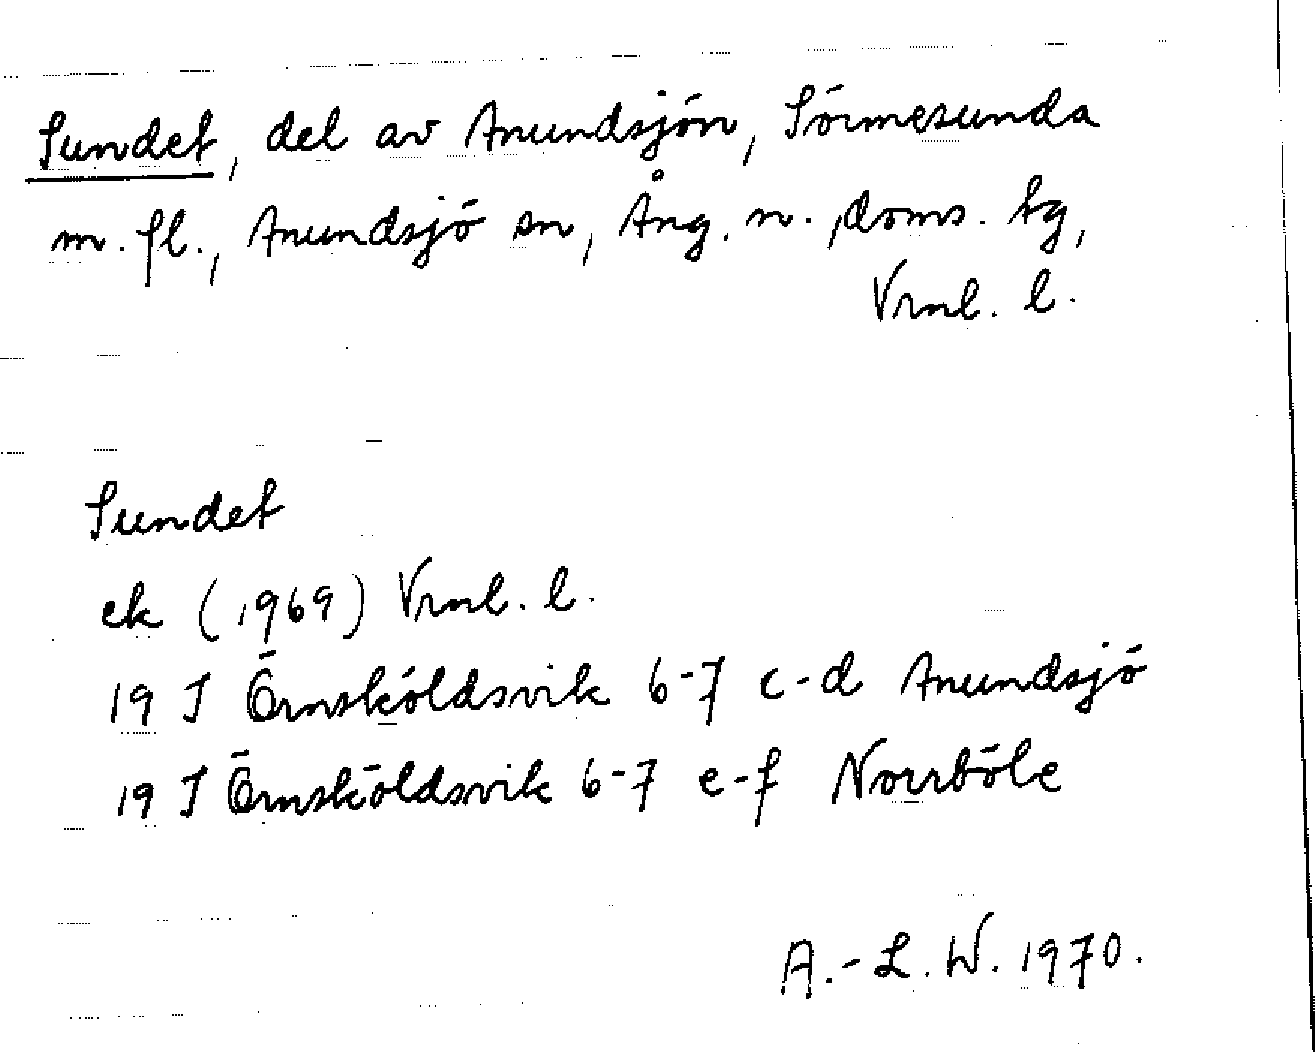 Sundet, del av Anundsjön, Sörmesunda
m. fl., Anundsjö sn, Ång. n. doms. tg,
Vrnl. l.
Sundet
ek (1969) Vrnl. l.
19 J Örnsköldsvik 6-7 c-d Anundsjö
19 J Örnsköldsvik 6-7 e-f Norrböle
A.-L. W. 1970.